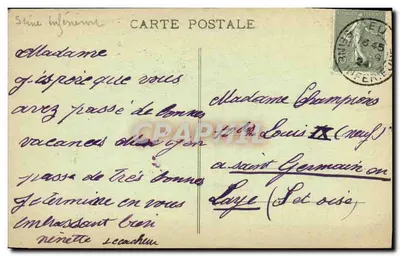 Seine inférieure
CARTE POSTALE
Madame
j'espère que vous
avez passé de bonnes
vacances
passe de très bonnes
Je termine en vous
embrassant bien
ninette
Madame Champions
Louis IX (neuf)
a saint Germain en
Laye (S et oise)
CRAPHI
EU